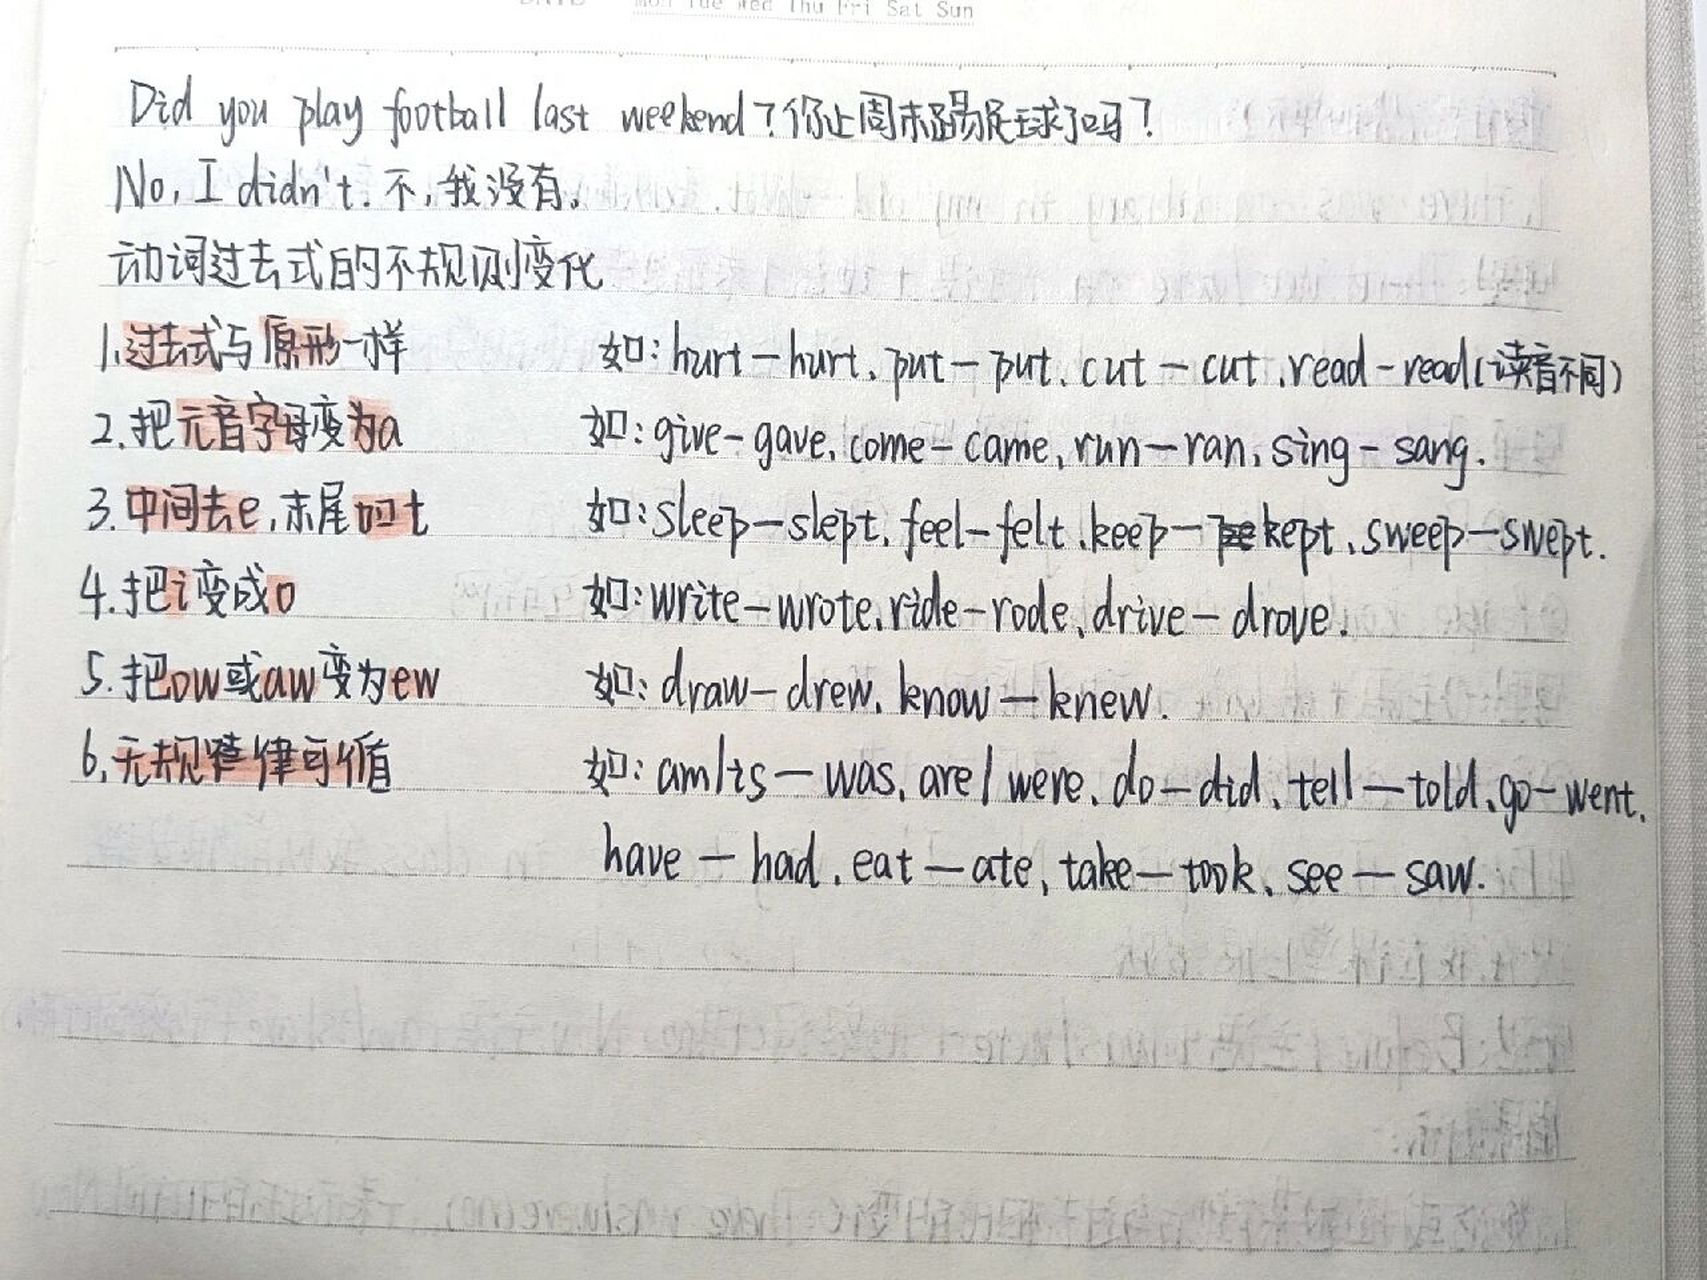 Mon Tue Wed Thu Fri Sat Sun
Did you play football last weekend?你上周末踢足球了吗?
No, I didn't. 不,我没有。
动词过去式的不规则变化
1.过去式与原形一样 如:hurt—hurt、put—put、cut—cut、read-read(读音不同)
2.把元音字母变为a 如:give-gave、come-came、run—ran、sing-sang.
3.中间去e,末尾加t 如:sleep—slept、feel-felt、keep—kept、sweep—swept.
4.把i变成o 如:write—wrote、ride-rode、drive-drove.
5.把ow或aw变为ew 如:draw-drew、know—knew.
6.无规律可循 如:am/is—was、are/were、do—did、tell—told、go-went、
have—had、eat—ate、take—took、see—saw.